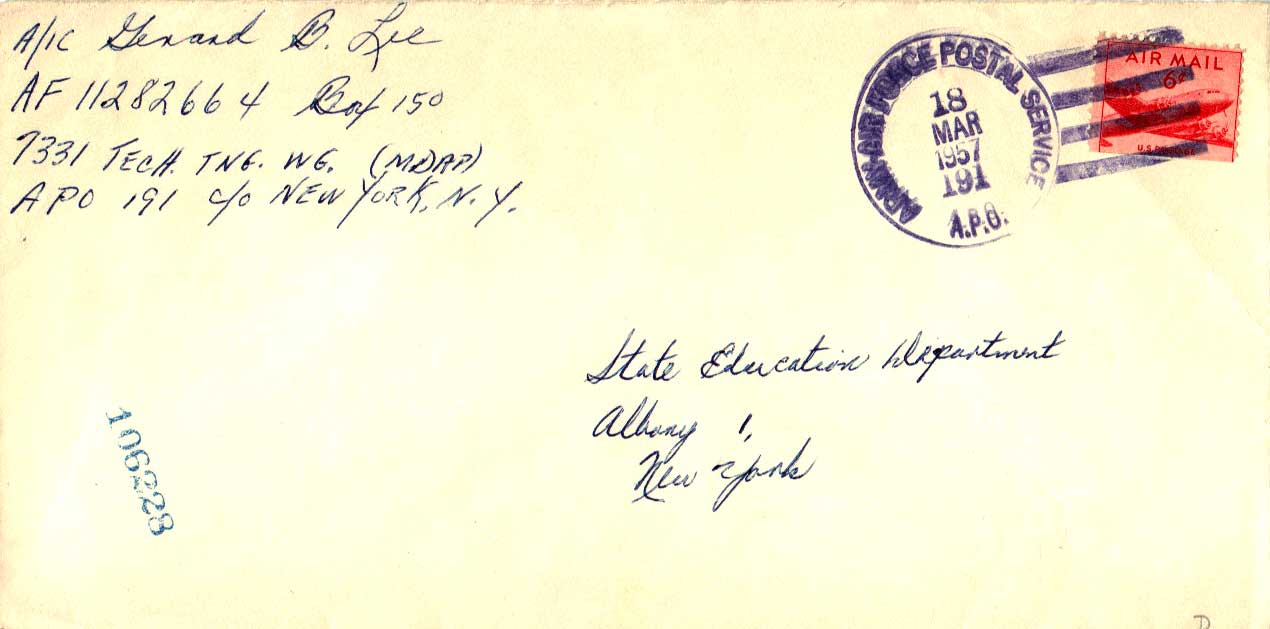 A/1C Gerard B. Lee
AF 11282664 Box 150
7331 TECH. TNG. WG. (MDAP)
APO 191 c/o NEW YORK, N.Y.
ARMY-AIR FORCE POSTAL SERVICE
18
MAR
1957
191
A.P.O.
AIR MAIL
6¢
U.S. POSTAGE
State Education Department
Albany 1,
New York
106228
D